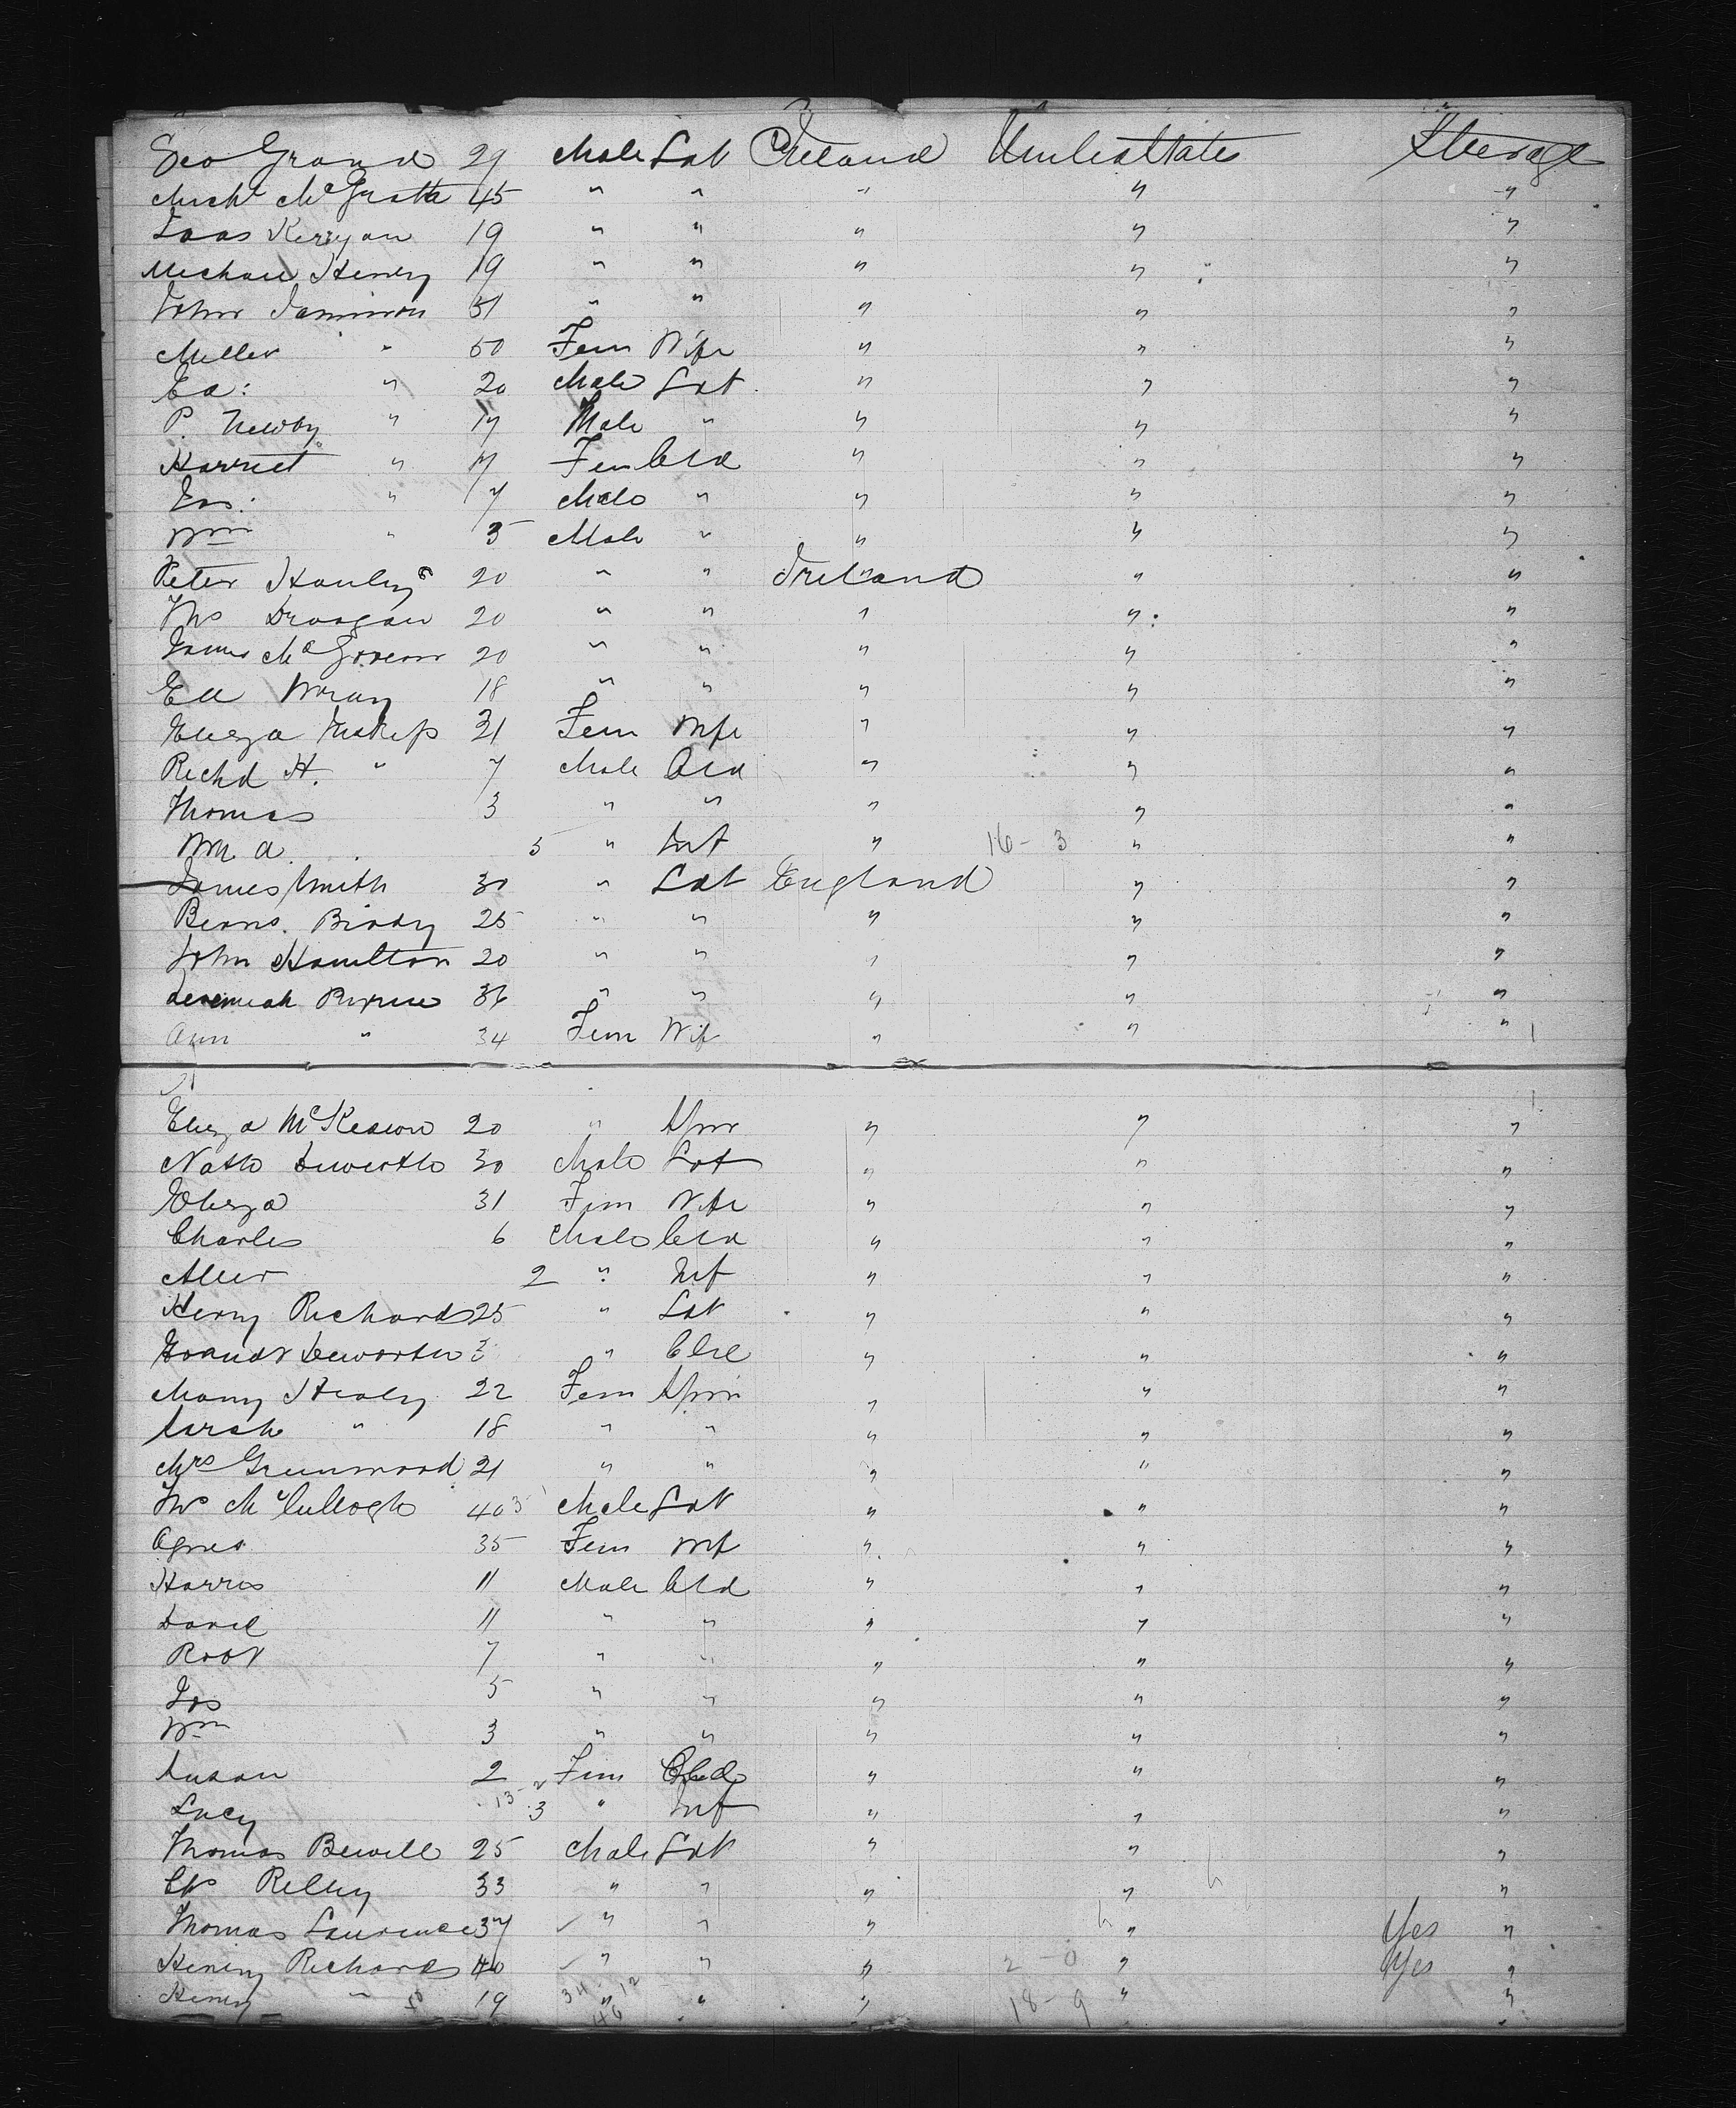 Geo Grand 29 Male Lab Ireland United States Steerage
Mich McGrath 45 " " " " "
19 " " " " "
Michael Henry 19 " " " " "
John Jamison 51 " " " " "
" 50 Fem Wife " " "
Ed: " 20 Male Lab " " "
P. Newby " 17 Male " " " "
Harriet " 17 Fem Cld " " "
Jas: " 7 Male " " " "
Wm " 5 Male " " " "
Peter Hanley 20 " " Ireland " "
Ths Droogan 20 " " " " "
James McGovern 20 " " " " "
Ed Wray 18 " " " " "
Eliza 31 Fem Wfe " " "
Richd H. " 7 Male Cld " " "
Thomas 3 " " " " "
Wm A. 5 " Inf " 16-3 " "
James Smith 30 " Lab England " "
Birdy 25 " " " " "
John Hamilton 20 " " " " "
Jeremiah Byrne 36 " " " " "
Ann " 34 Fem Wif " " "
Eliza McKeown 20 " Spin " " "
Nath 30 Male Lab " " "
Eliza 31 Fem Wife " " "
Charles 6 Male Cld " " "
2 " Inf " " "
Henry Richards 25 " Lab " " "
3 " Cld " " "
Mary Healy 22 Fem Spin " " "
Sarah " 18 " " " " "
Mrs Greenwood 21 " " " " "
Ths McCullogh 40 Male Lab " " "
Agnes 35 Fem Wf " " "
Harris 11 Male Cld " " "
David 11 " " " " "
Robt 7 " " " " "
Jos 5 " " " " "
Wm 3 " " " " "
Susan 2 Fem Cld " " "
Lucy 3 " Inf " " "
Thomas Bewell 25 Male Lab " " "
Relley 33 " " " " "
Thomas Laurence 37 " " " " Yes "
Henry Richards 40 " " " 2-0 " Yes "
Henry " 19 " " " 18-9 " "